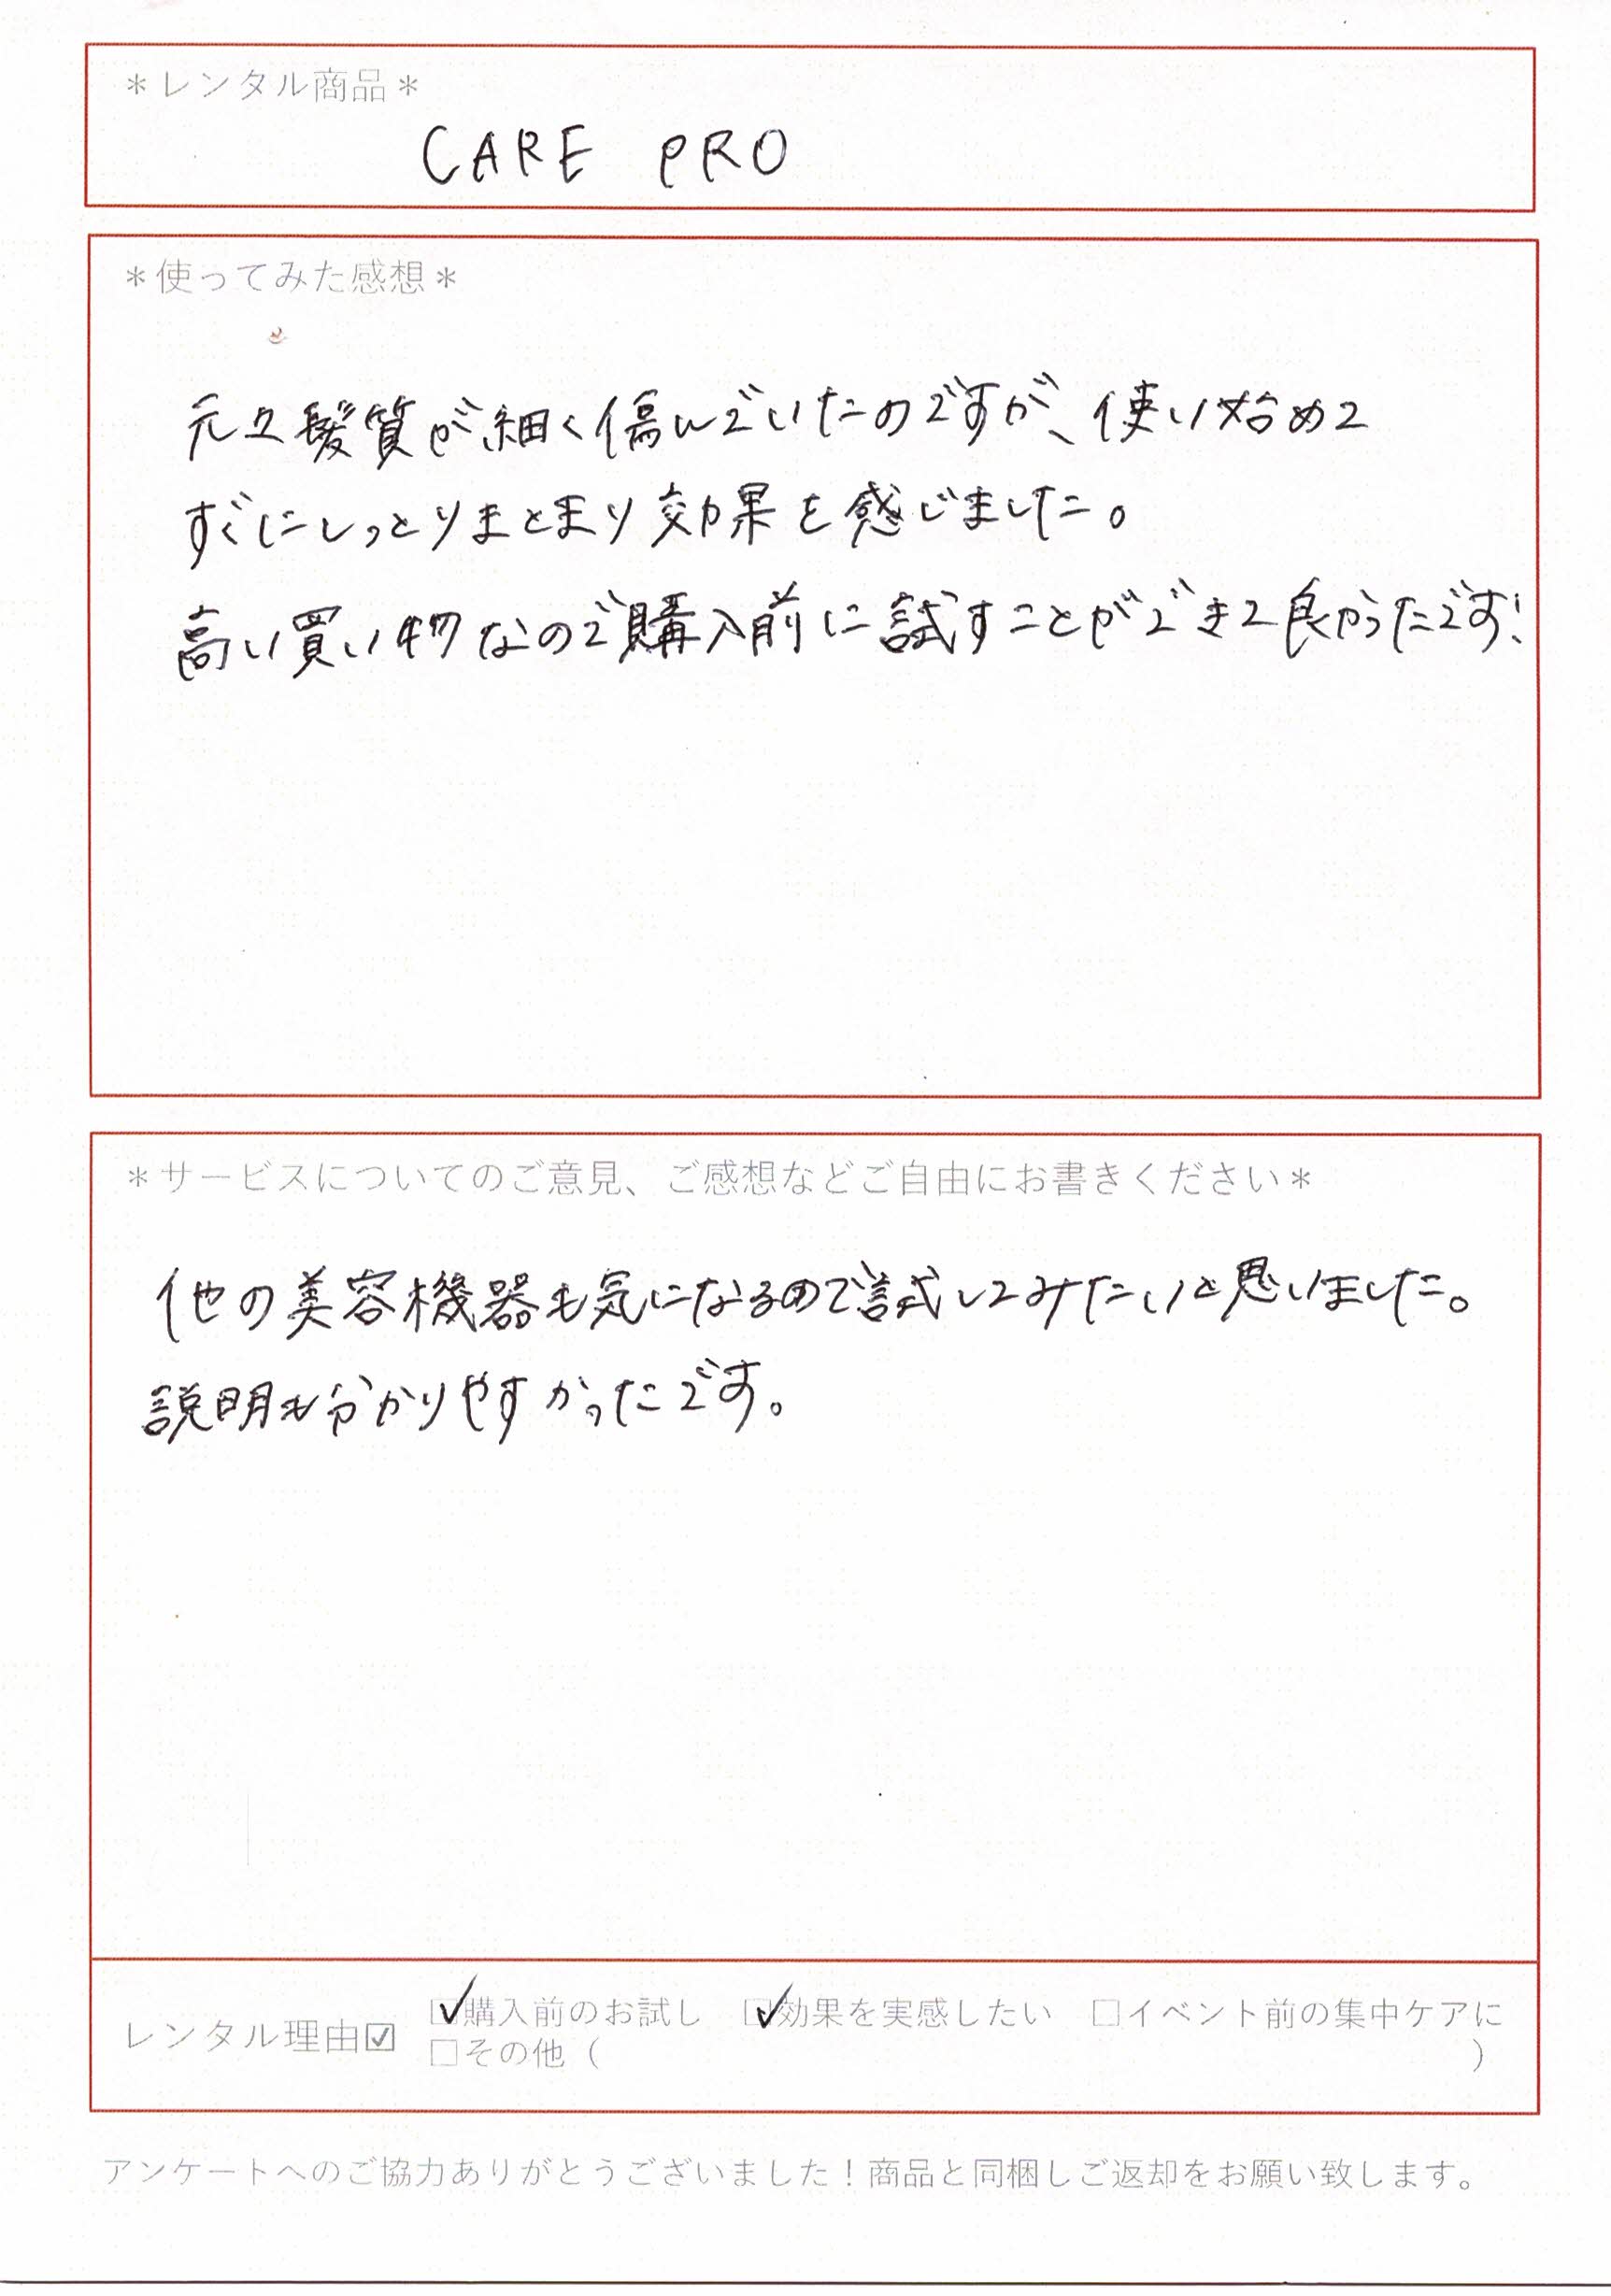 ＊レンタル商品＊
CARE PRO
＊使ってみた感想＊
元々髪質が細く傷んでいたのですが、使い始めて
すぐにしっとりまとまり効果を感じました。
高い買い物なので購入前に試すことができて良かったです!
＊サービスについてのご意見、ご感想などご自由にお書きください＊
他の美容機器も気になるので試してみたいと思いました。
説明も分かりやすかったです。
レンタル理由☑ ☑購入前のお試し ☑効果を実感したい □イベント前の集中ケアに
□その他（ ）
アンケートへのご協力ありがとうございました！商品と同梱しご返却をお願い致します。